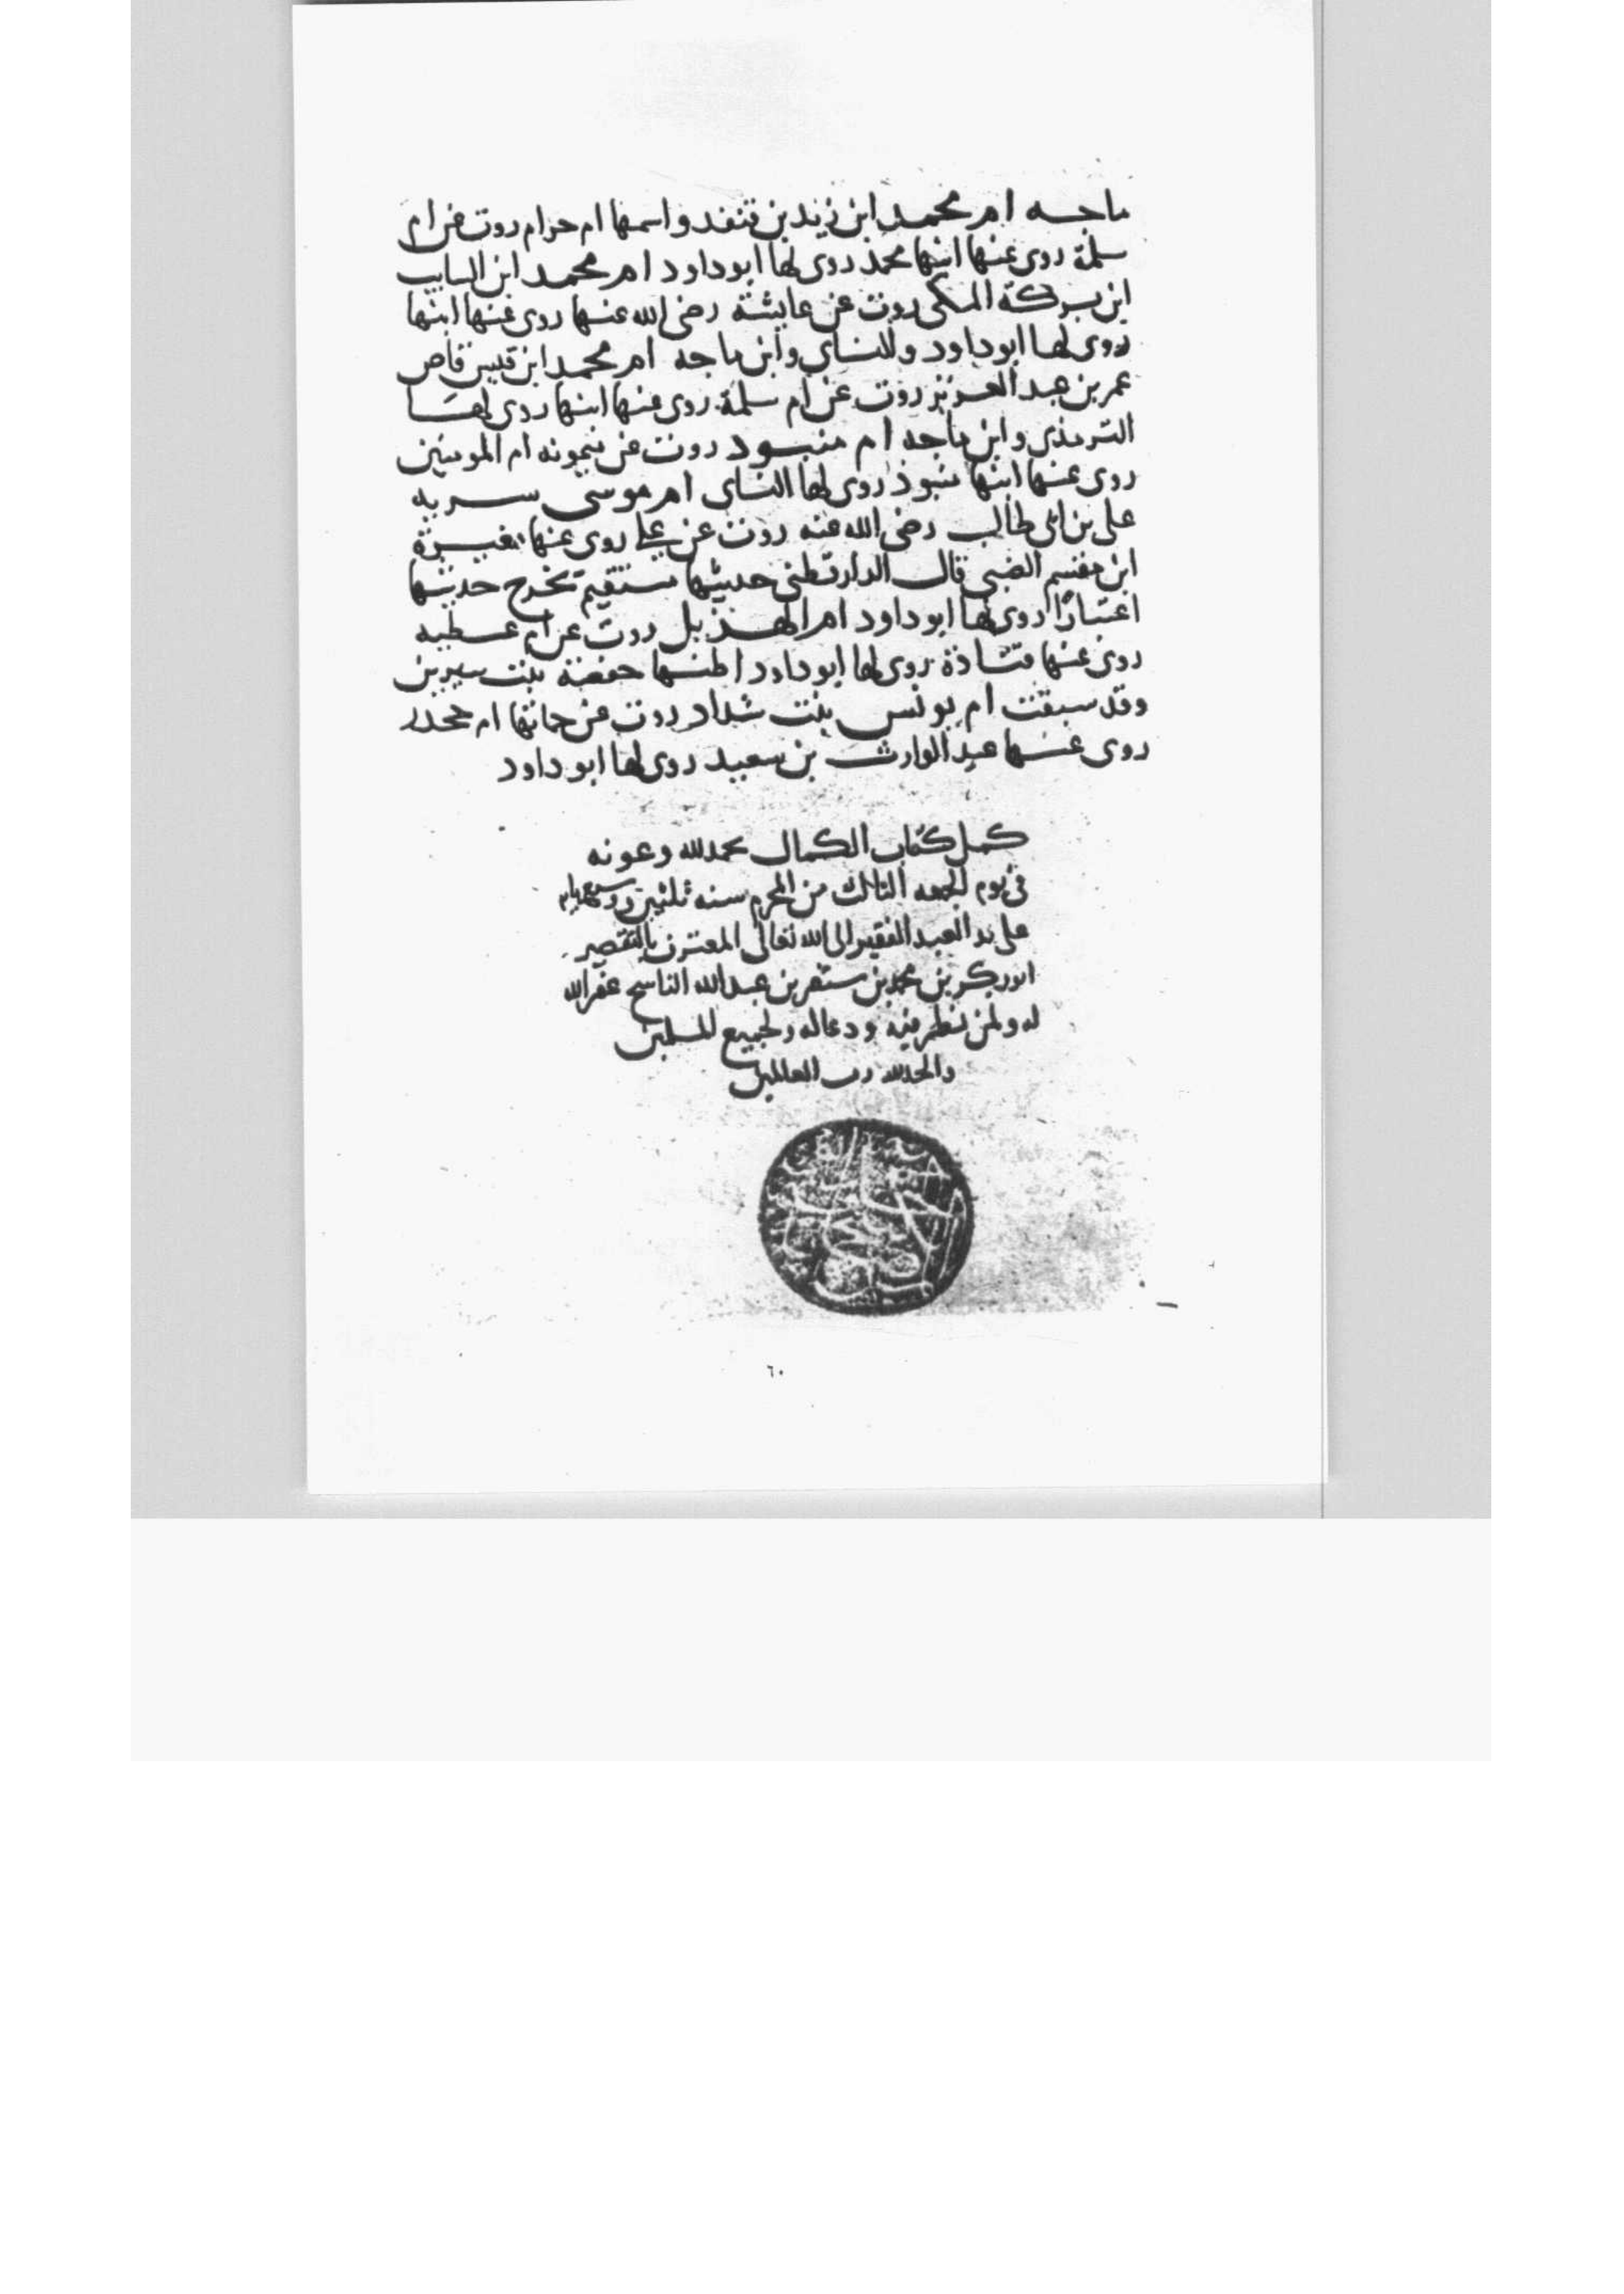 ماجه ام محمد ابن زيد بن قنفد واسمها ام حرام روت عن ام
سلمة روى عنها ابنها محمد روى لها ابو داود ام محمد ابن السايب
ابن بركة المكى روت عن عايشة رضى الله عنها روى عنها ابنها
روى لها ابو داود والنساى وابن ماجه ام محمد ابن قيس قاص
عمر بن عبد العزيز روت عن ام سلمة روى عنها ابنها روى لها
الترمذى وابن ماجه ام منبود روت عن ميمونه ام المومنين
روى عنها ابنها منبوذ روى لها النساى ام موسى سريه
على بن ابى طالب رضى الله عنه روت عن على روى عنها مغيرة
ابن مقسم الضبى قال الدارقطنى حديثها مستقيم تخرج حديثها
اعتبارًا روى لها ابو داود ام الهذيل روت عن ام عطيه
روى عنها قتادة روى لها ابو داود اظنها حفصة بنت سيرين
وقد سبقت ام يونس بنت شداد روت عن حماتها ام جحدر
روى عنها عبد الوارث بن سعيد روى لها ابو داود
كمل كتاب الكمال بحمد الله وعونه
فى يوم الجمعه الثالث من المحرم سنه ثلثين وسبعمايه
على يد العبد الفقير الى الله تعالى المعترف بالتقصير
ابو بكر بن محمد بن سنقر بن عبد الله الناسخ غفر الله
له ولمن نظر فيه ودعا له ولجميع المسلمين
والحمد لله رب العالمين
٦٠